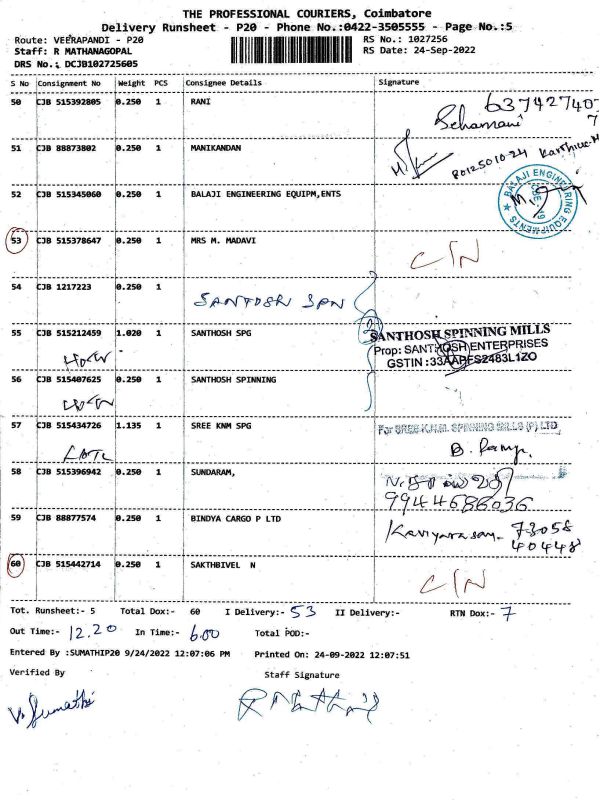 THE PROFESSIONAL COURIERS, Coimbatore
Delivery Runsheet - P20 - Phone No.:0422-3505555 - Page No.:5
Route: VEERAPANDI - P20
RS No.: 1027256
Staff: R MATHANAGOPAL
RS Date: 24-Sep-2022
DRS No.: DCJB102725605
S No Consignment No Weight PCS Consignee Details Signature
50 CJB 515392805 0.250 1 RANI
637427407
7
51 CJB 88873802 0.250 1 MANIKANDAN
8012501024 Karthick.M
52 CJB 515345060 0.250 1 BALAJI ENGINEERING EQUIPM,ENTS
BALAJI ENGINEERING EQUIPMENTS
CBE-19
53 CJB 515378647 0.250 1 MRS M. MADAVI
C/N
54 CJB 1217223 0.250 1
SANTOSH SPN
55 CJB 515212459 1.020 1 SANTHOSH SPG
SANTHOSH SPINNING MILLS
Prop: SANTHOSH ENTERPRISES
GSTIN :33AAPFS2483L1ZO
56 CJB 515407625 0.250 1 SANTHOSH SPINNING
57 CJB 515434726 1.135 1 SREE KNM SPG
For SREE K.N.M. SPINNING MILLS (P) LTD
58 CJB 515396942 0.250 1 SUNDARAM,
9944686036
59 CJB 88877574 0.250 1 BINDYA CARGO P LTD
Kaviyarasan- 73058
40448
60 CJB 515442714 0.250 1 SAKTHBIVEL N
C/N
Tot. Runsheet:- 5 Total Dox:- 60 I Delivery:- 53 II Delivery:- RTN Dox:- 7
Out Time:- 12.20 In Time:- 6.00 Total POD:-
Entered By :SUMATHIP20 9/24/2022 12:07:06 PM Printed On: 24-09-2022 12:07:51
Verified By Staff Signature
V. Sumathi